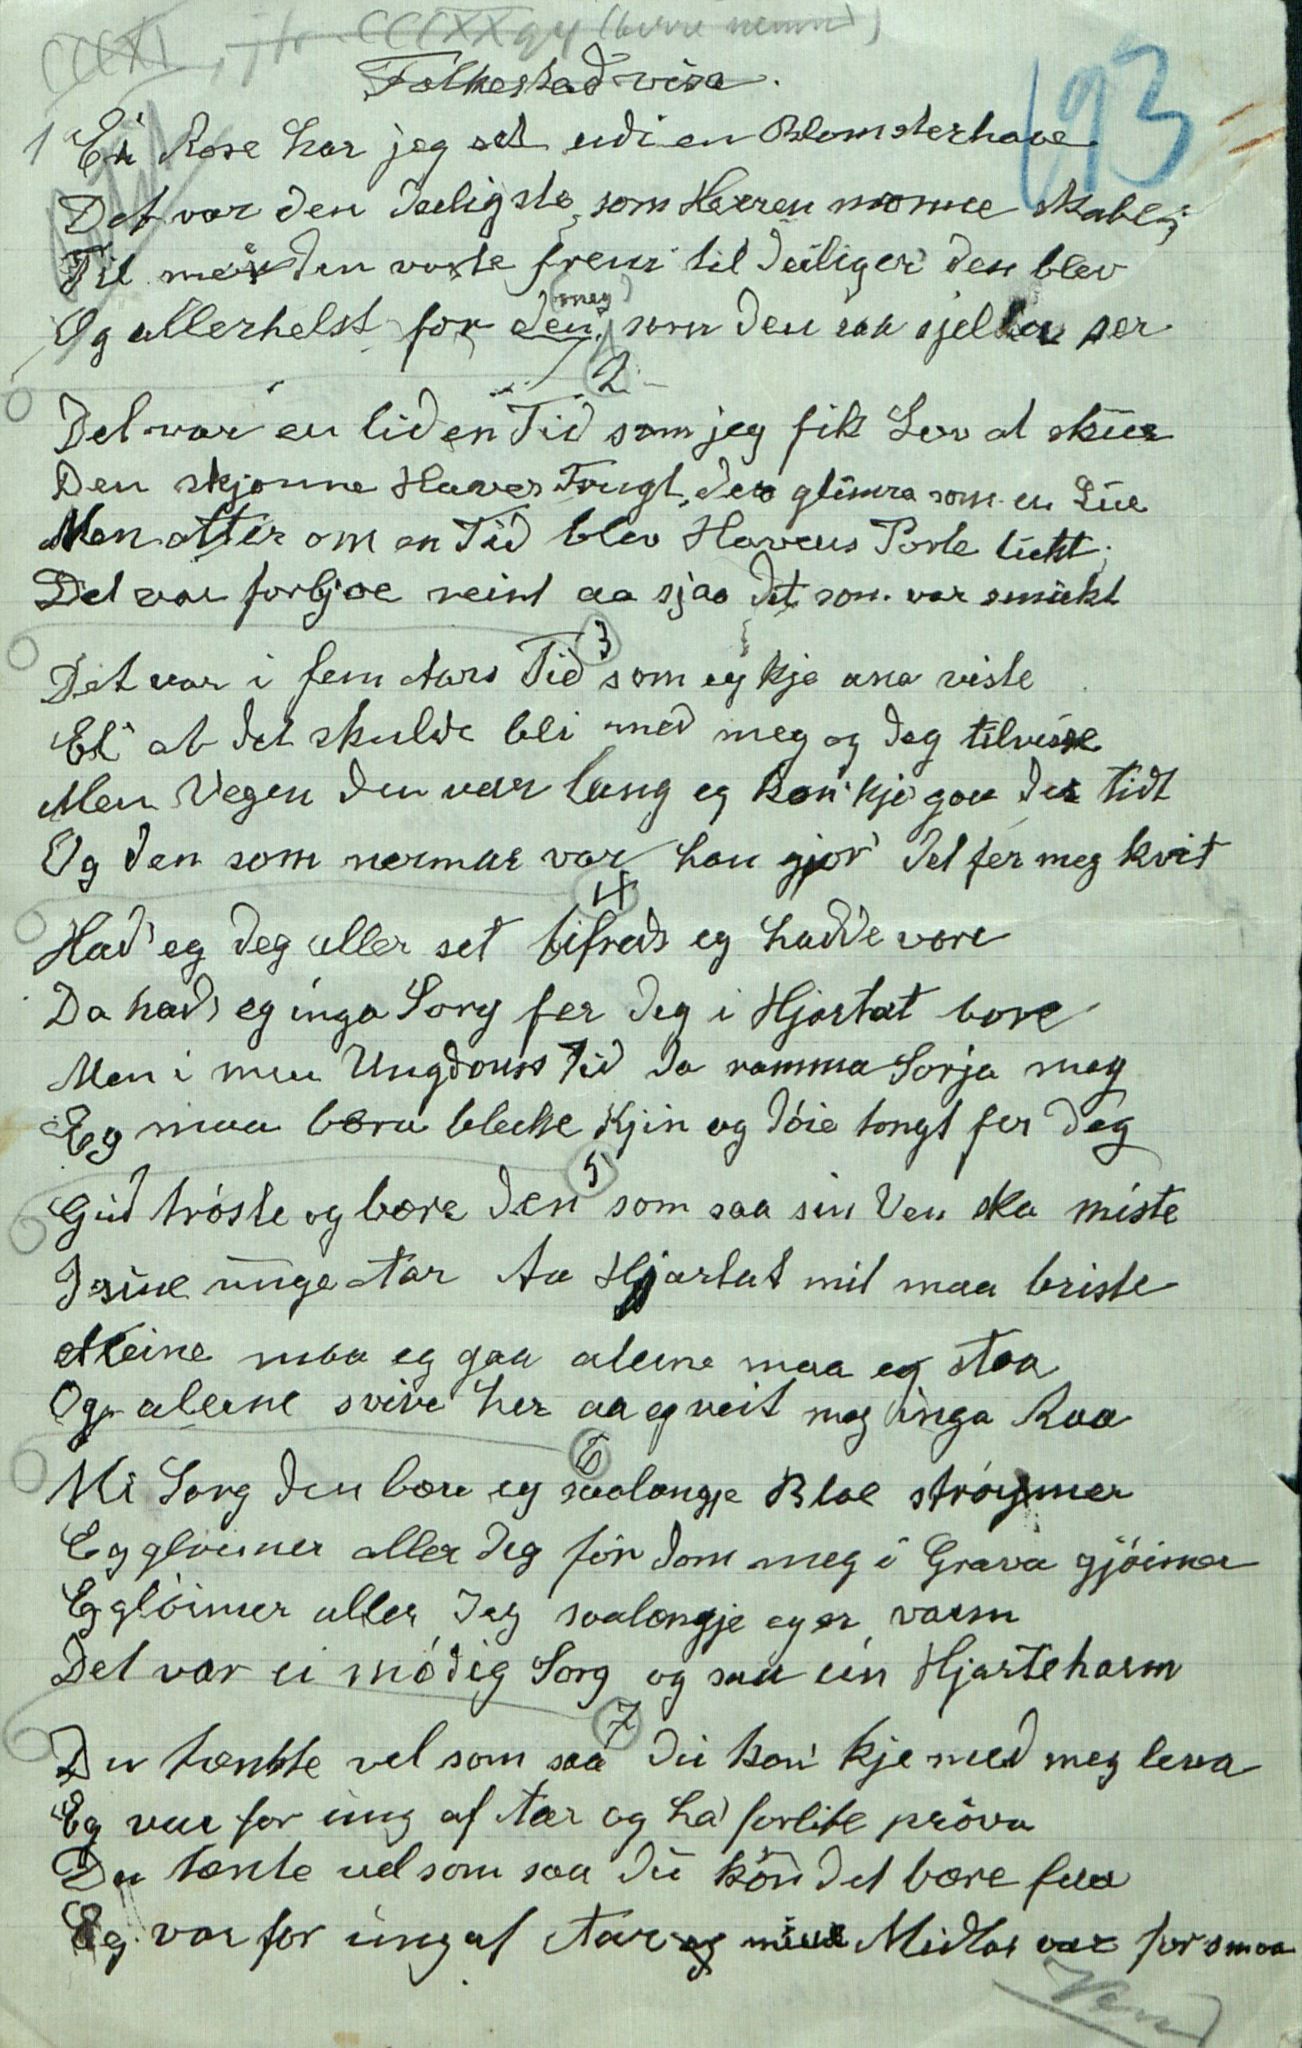 CCCXI, jfr. CCCXX (berre nemnd)
193
Folkestadvisa.
1 Ei Rose har jeg set udi en Blomsterhave
Det var den deiligste som Herren monne skabe;
Til meir den voxte frem til deiliger den blev
Og allerhelst for den (meg) som den saa sjella ser
2
Det var en liden Tid som jeg fik Lov at skue
Den skjønne Haves Frugt, den glimra som en Lue
Men atter om en Tid blev Havens Porte lukt;
Det var forbjoe reint aa sjaa det som var smukt
3
Det var i fem Aars Tid som eg kje ana viste
El at det skulde bli med meg og deg tilvisse
Men Vegen den var lang eg kon' kje gaa der tidt
Og den som nermar var han gjor' det fer meg kvit
4
Had' eg deg aller set tifreds eg hadde vore
Da had' eg inga Sorg fer deg i Hjartat bore
Men i min Ungdoms Tid da ramma Sorja meg
Eg maa bæra bleke Kjin og døie tongt fer deg
5
Gud trøste og bære den som saa sin Ven ska miste
I sine unge Aar Aa Hjartat mit maa briste
Aleine maa eg gaa aleine maa eg staa
Og aleine svive her aa eg veit meg inga Raa
6
Mi Sorg den bær eg saalangje Bloe strøymer
Eg gløimer aller deg før dom meg i Grava gjøimer
Eg gløimer aller deg saalangje eg er varm
Det var ei mødig Sorg og saa ein Hjarteharm
7
Du tænkte vel som saa du kon' kje med meg leva
Eg var for ung af Aar og ha' forlite prøva
Du tænkte vel som saa du kon det bære faa
Eg var for ung af Aar og mine Midlar var for smaa
Vend